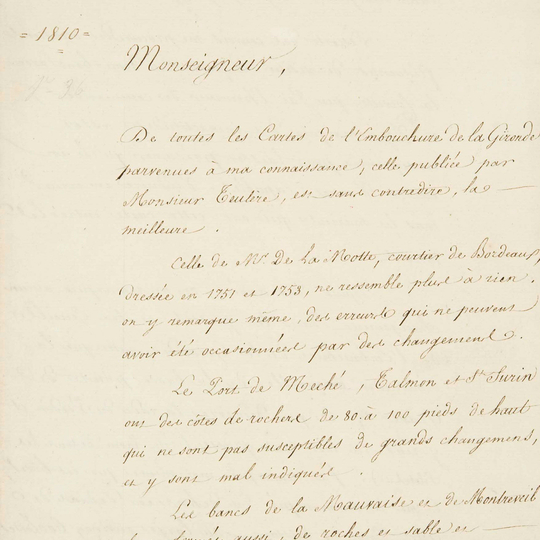 = 1810 =
Monseigneur,
De toutes les Cartes de l'Embouchure de la Gironde
parvenues à ma connaissance, celle publiée par
Monsieur Teulère, est sans contredire, la —
meilleure.
Celle de Mr. De La Motte, courtier de Bordeaux,
dressée en 1751 et 1753, ne ressemble plus à rien.
on y remarque même, des erreurs qui ne peuvent
avoir été occasionnées par des changements.
Le Port de Meché, Talmon et St. Surin
ont des côtes de rochers de 80 à 100 pieds de haut
qui ne sont pas susceptibles de grands changemens,
et y sont mal indiqués.
Les bancs de la Mauvaise et de Montreveil
aussi, de roches et sable et —